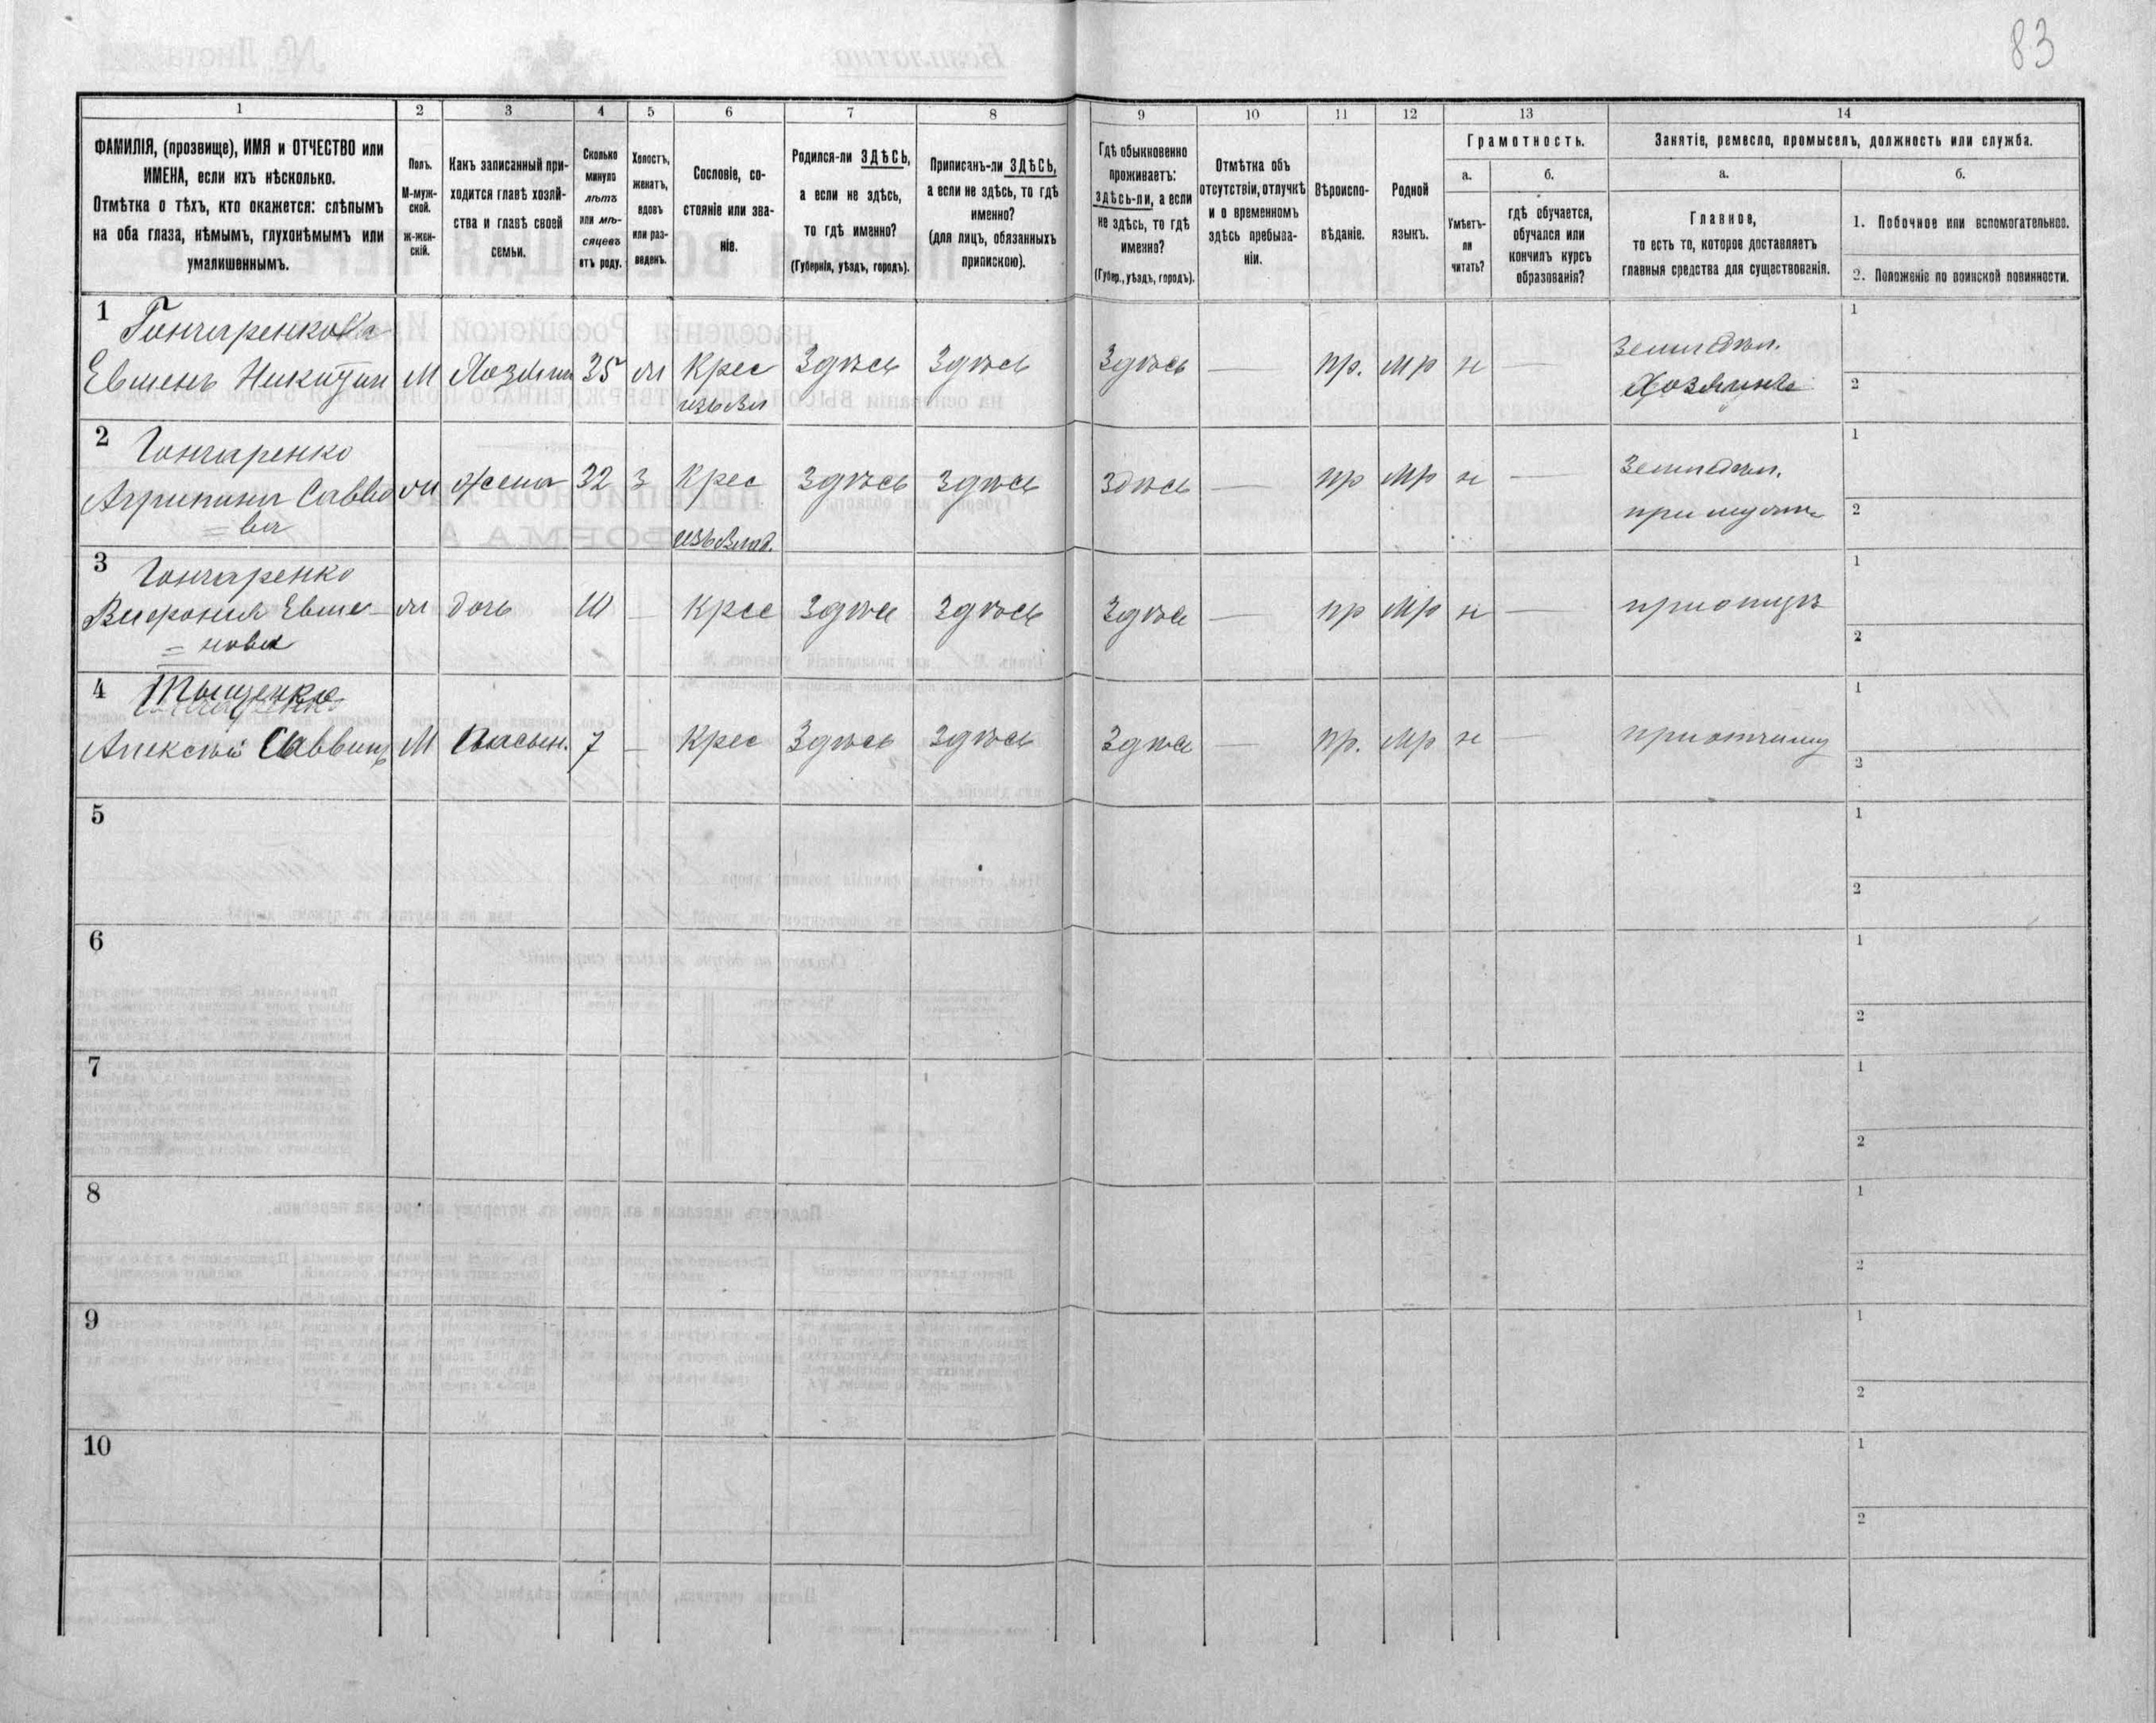 83
1 2 3 4 5 6 7 8 9 10 11 12 13 14
ФАМИЛІЯ, (прозвище), ИМЯ и ОТЧЕСТВО или
ИМЕНА, если ихъ нѣсколько.
Отмѣтка о тѣхъ, кто окажется: слѣпымъ
на оба глаза, нѣмымъ, глухонѣмымъ или
умалишеннымъ.
Полъ.
М-муж-
ской.
Ж-жен-
скій.
Какъ записанный при-
ходится главѣ хозяй-
ства и главѣ своей
семьи.
Сколько
минуло
лѣтъ
или мѣ-
сяцевъ
отъ роду.
Холостъ,
женатъ,
вдовъ
или раз-
веденъ.
Сословіе, со-
стояніе или зва-
ніе.
Родился-ли ЗДѢСЬ,
а если не здѣсь,
то гдѣ именно?
(Губернія, уѣздъ, городъ).
Приписанъ-ли ЗДѢСЬ,
а если не здѣсь, то гдѣ
именно?
(для лицъ, обязанныхъ
припискою).
Гдѣ обыкновенно
проживаетъ:
здѣсь-ли, а если
не здѣсь, то гдѣ
именно?
(Губер., уѣздъ, городъ).
Отмѣтка объ
отсутствіи, отлучкѣ
и о временномъ
здѣсь пребыва-
ніи.
Вѣроиспо-
вѣданіе.
Родной
языкъ.
Грамотность.
а.
Умѣетъ-
ли
читать?
б.
гдѣ обучается,
обучался или
кончилъ курсъ
образованія?
Занятіе, ремесло, промыселъ, должность или служба.
а.
Главное,
то есть то, которое доставляетъ
главныя средства для существованія.
б.
1. Побочное или вспомогательное.
2. Положеніе по воинской повинности.
1 Гончаренко
Евменъ Никитин М Хозяин 35 Крес Здѣсь Здѣсь Здѣсь — пр. мр н — Земледѣл. 1
Хозяинъ 2
2 Гончаренко
Агрипина Савво жена 32 з Крес Здѣсь Здѣсь Здѣсь — пр мр н — Земледѣл. 1
= ва при мужѣ 2
3 Гончаренко
Евме дочь 10 — Крес Здѣсь Здѣсь Здѣсь — пр мр н — при отцѣ 1
= нова 2
4 Тыщенко
Алексѣй Саввин М пасын. 7 — Крес Здѣсь Здѣсь Здѣсь — пр. мр н — при отчиму 1
2
5 1
2
6 1
2
7 1
2
8 1
2
9 1
2
10 1
2